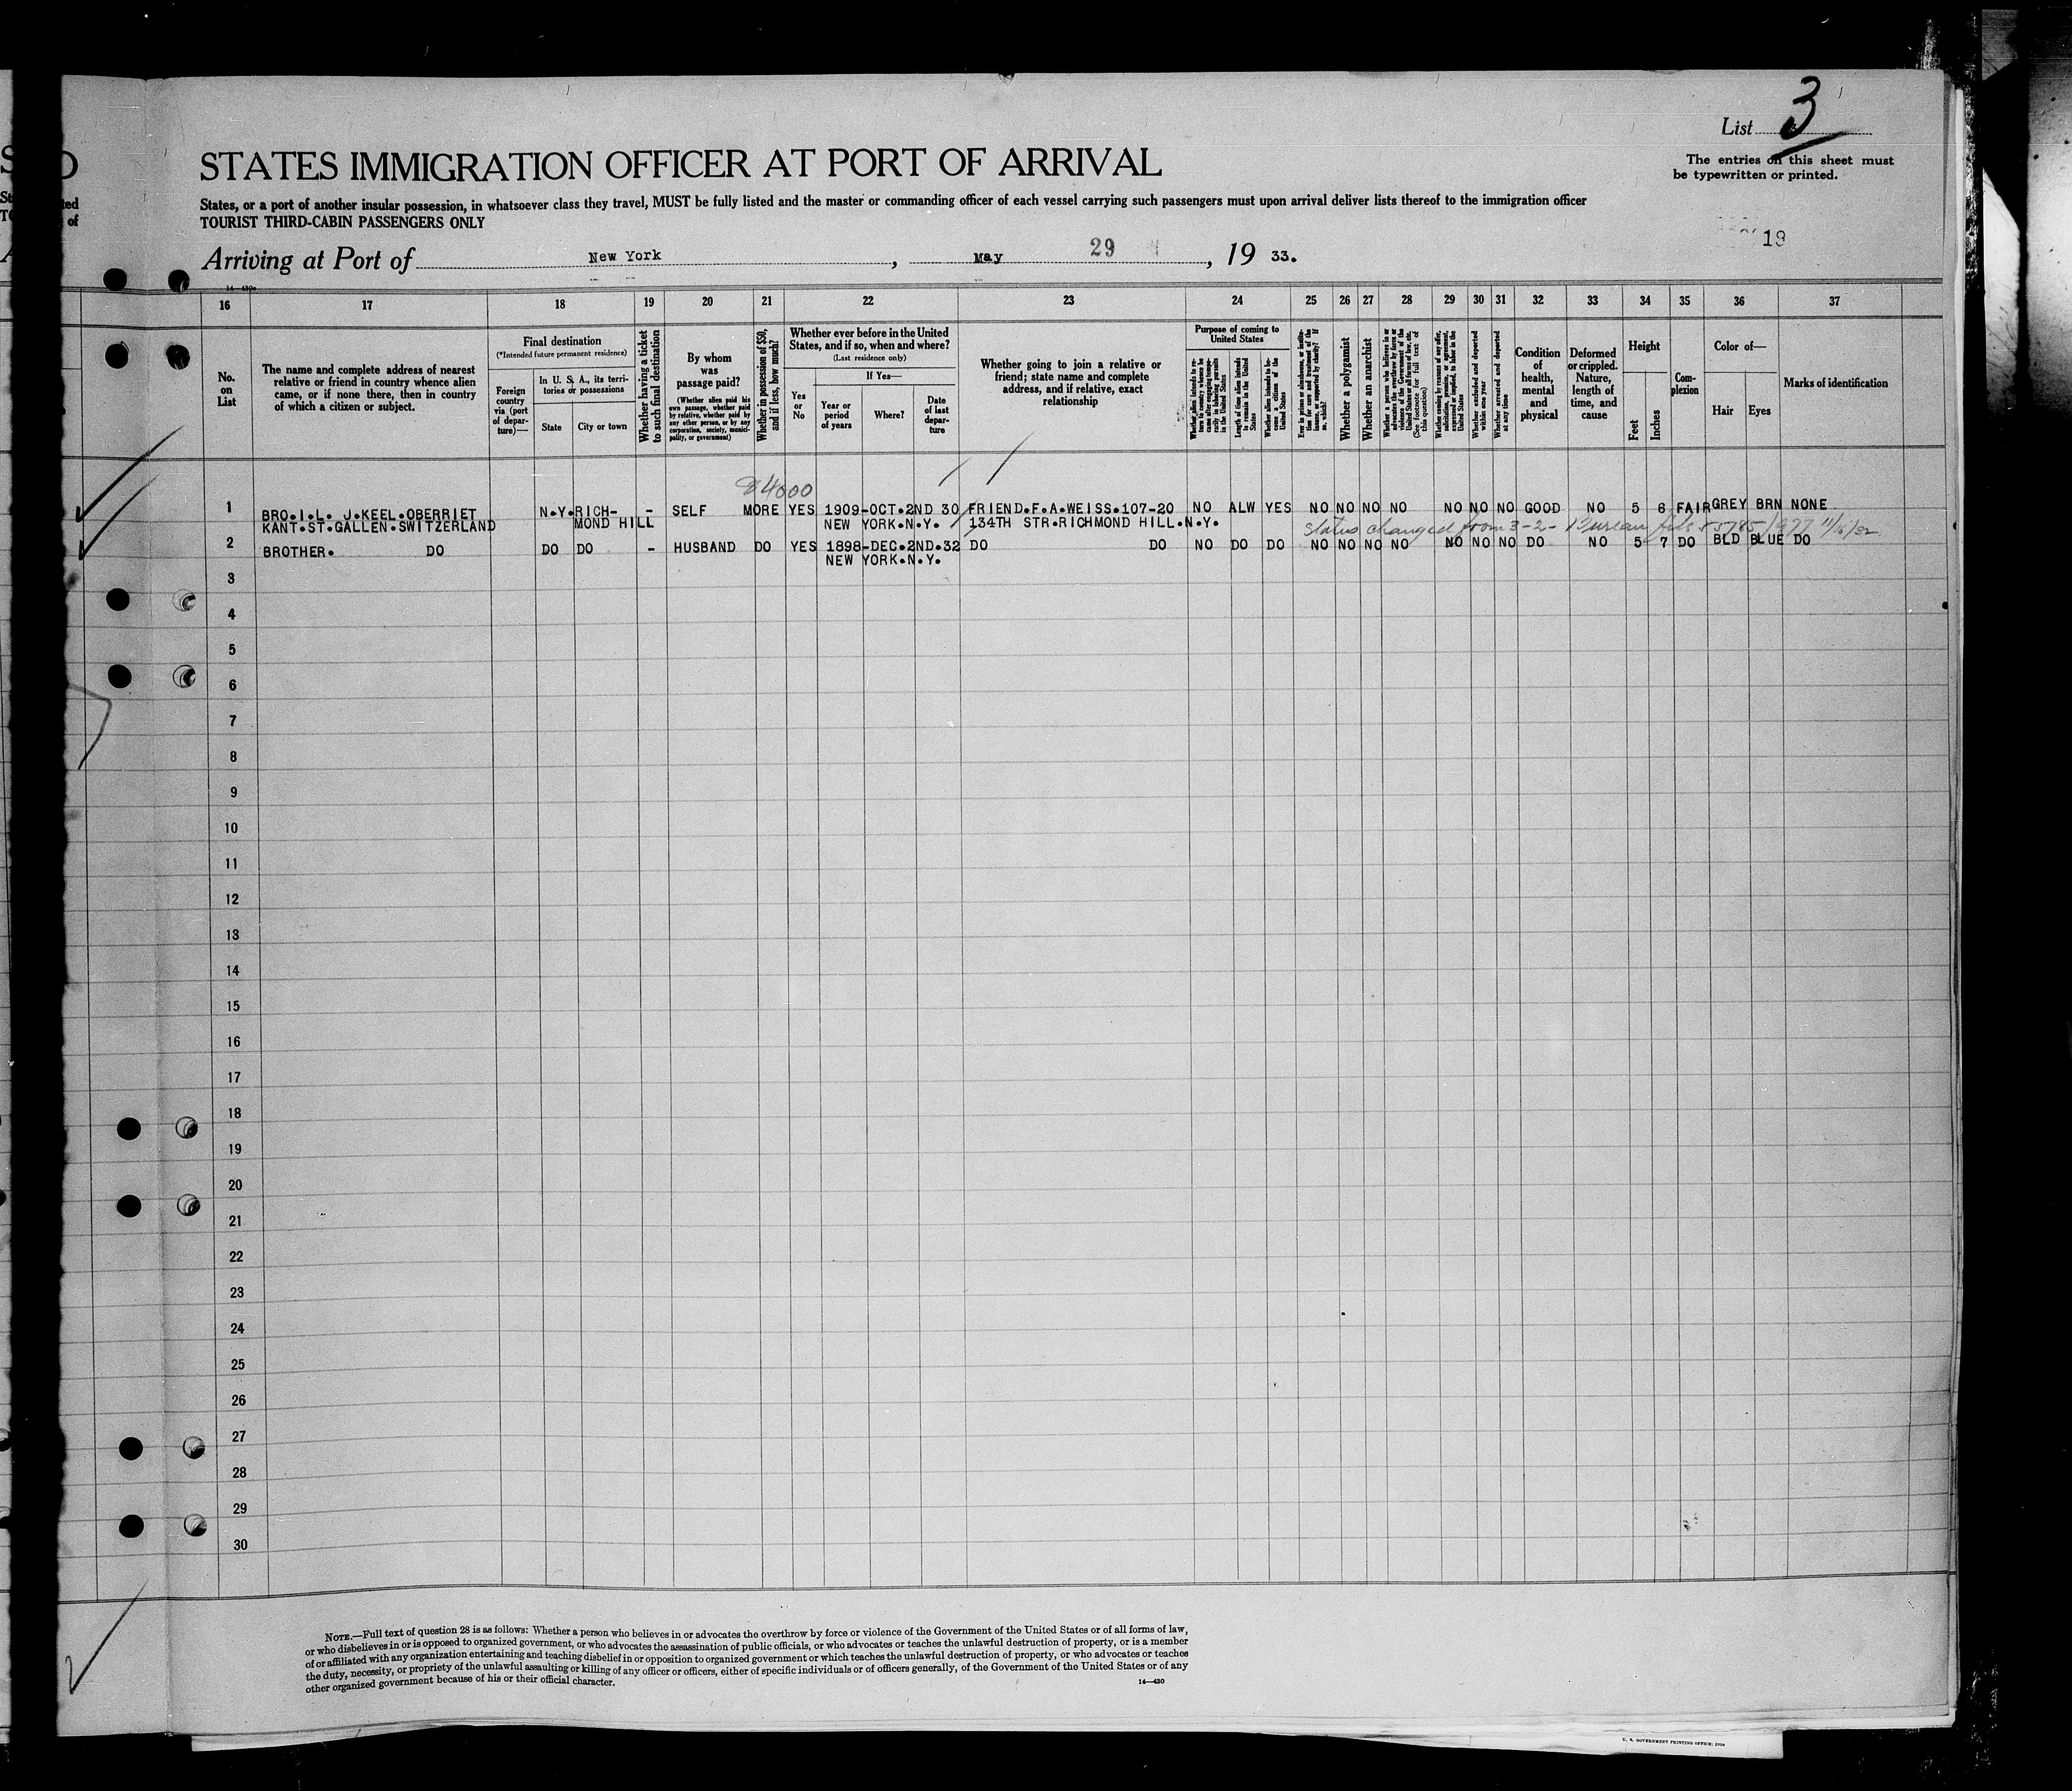 List 3
The entries on this sheet must
be typewritten or printed.
STATES IMMIGRATION OFFICER AT PORT OF ARRIVAL
States, or a port of another insular possession, in whatsoever class they travel, MUST be fully listed and the master or commanding officer of each vessel carrying such passengers must upon arrival deliver lists thereof to the immigration officer
TOURIST THIRD-CABIN PASSENGERS ONLY
19
Arriving at Port of New York, May 29, 19 33.
16 17 18 19 20 21 22 23 24 25 26 27 28 29 30 31 32 33 34 35 36 37
No.
on
List
The name and complete address of nearest
relative or friend in country whence alien
came, or if none there, then in country
of which a citizen or subject.
Final destination
(*Intended future permanent residence)
Foreign
country
via (port
of depar-
ture)—
In U. S. A., its terri-
tories or possessions
State
City or town
Whether having a ticket
to such final destination
By whom
was
passage paid?
(Whether alien paid his
own passage, whether paid
by relative, whether paid by
any other person, or by any
corporation, society, munici-
pality, or government)
Whether in possession of $50,
and if less, how much?
Whether ever before in the United
States, and if so, when and where?
(Last residence only)
Yes
or
No
If Yes—
Year or
period
of years
Where?
Date
of last
depar-
ture
Whether going to join a relative or
friend; state name and complete
address, and if relative, exact
relationship
Purpose of coming to
United States
Length of time alien intends
to remain in the United
States
Whether alien intends to be-
come a citizen of the
United States
Whether a polygamist
Whether an anarchist
(See footnote for full text of
this question)
Whether excluded and deported
within one year
Whether arrested and deported
at any time
Condition
of
health,
mental
and
physical
Deformed
or crippled.
Nature,
length of
time, and
cause
Height
Feet
Inches
Com-
plexion
Color of—
Hair
Eyes
Marks of identification
$4000
1 BRO.I.L. J.KEEL.OBERRIET N.Y. RICH- - SELF MORE YES 1909-OCT.2ND 30 FRIEND.F.A.WEISS.107-20 NO ALW YES NO NO NO NO NO NO NO GOOD NO 5 6 FAIR GREY BRN NONE
KANT.ST.GALLEN.SWITZERLAND MOND HILL NEW YORK.N.Y. 134TH STR.RICHMOND HILL.N.Y.
Status changed from 3-2- Bureau 55785/977 11/6/32
2 BROTHER. DO DO DO - HUSBAND DO YES 1898-DEC.2ND.32 DO DO NO DO DO NO NO NO NO NO NO NO DO NO 5 7 DO BLD BLUE DO
NEW YORK.N.Y.
3
4
5
6
7
8
9
10
11
12
13
14
15
16
17
18
19
20
21
22
23
24
25
26
27
28
29
30
NOTE.—Full text of question 28 is as follows: Whether a person who believes in or advocates the overthrow by force or violence of the Government of the United States or of all forms of law,
or who disbelieves in or is opposed to organized government, or who advocates the assassination of public officials, or who advocates or teaches the unlawful destruction of property, or is a member
of or affiliated with any organization entertaining and teaching disbelief in or opposition to organized government or which teaches the unlawful destruction of property, or who advocates or teaches
the duty, necessity, or propriety of the unlawful assaulting or killing of any officer or officers, either of specific individuals or of officers generally, of the Government of the United States or of any
other organized government because of his or their official character.
14—430
U. S. GOVERNMENT PRINTING OFFICE: